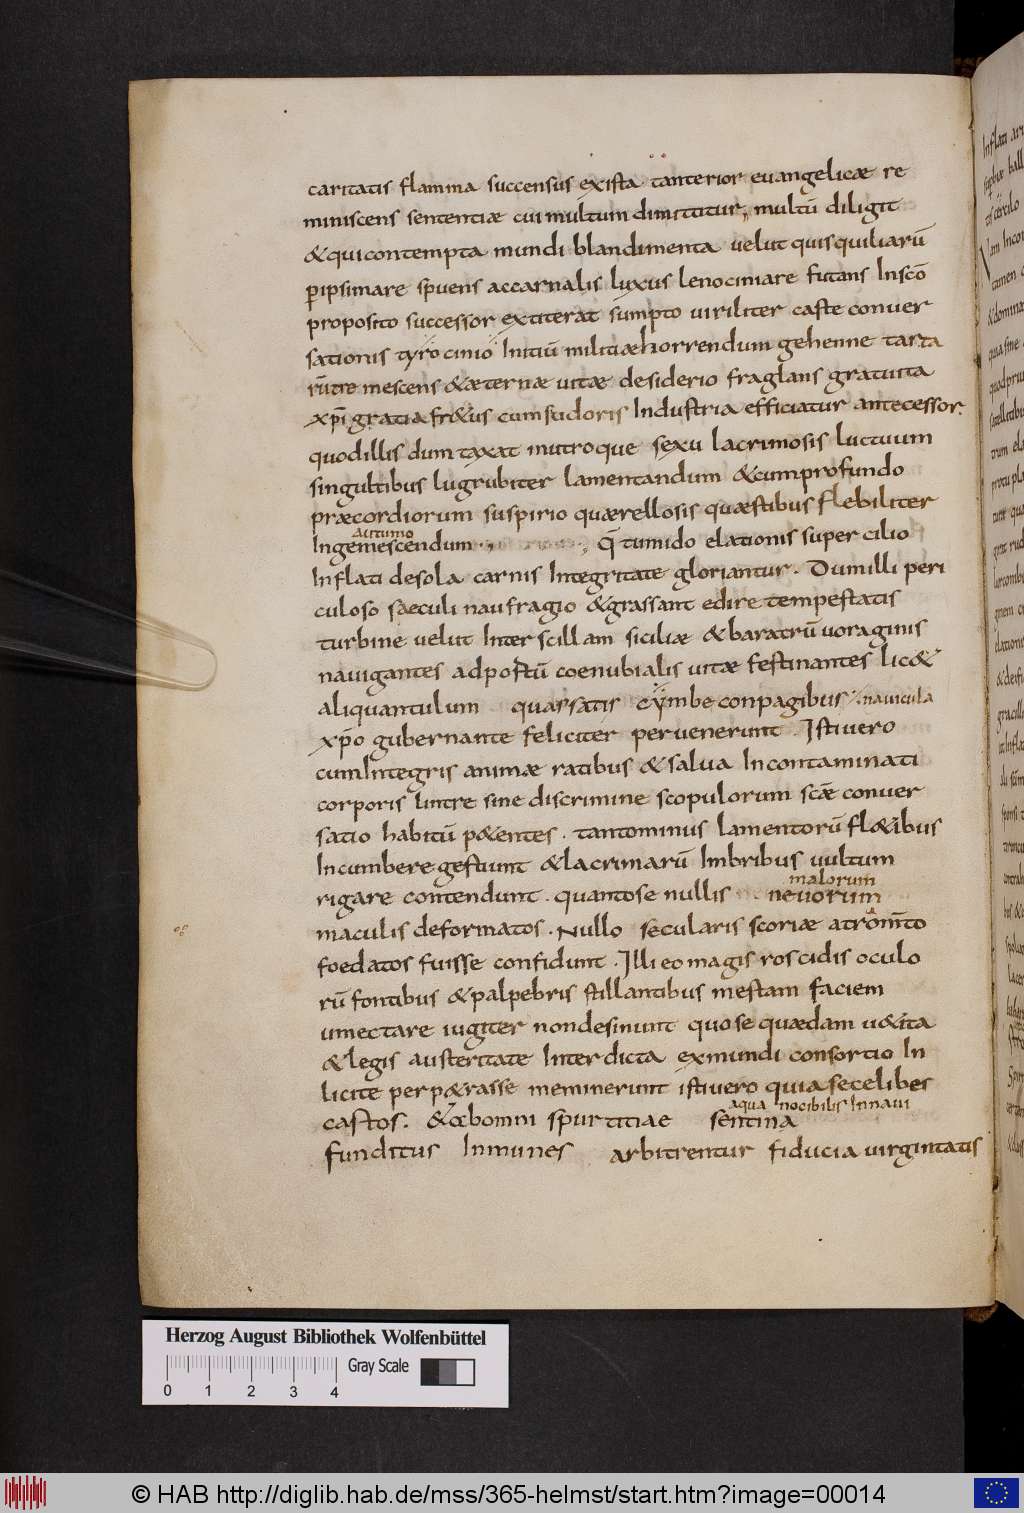 caritatis flamma succensus exista tanterior euangelicæ re
miniscens sententiæ cui multum dimittitur, multū diligit
&qui contempta mundi blandimenta uelut quisquiliarū
ꝑipsimare spuens ac carnalis luxus lenocinare futans In scō
proposito successor extiterat sumpto uiriliter caste conuer
sationis tyrocinio Initiū militiæ horrendum gehenne tarta
rū tremescens &æternæ uitæ desiderio fraglans gratuita
xp̄i gratia fr&us cum sudoris Industria efficiatur antecessor.
quod illis dum taxat in utroque sexu lacrimosis luctuum
singultibus lugrubiter lamentandum &cum profundo
præcordiorum suspirio quærellosis quæstibus flebiliter
autumo
Ingemescendum q̄ tumido elationis super cilio
Inflati de sola carnis Integritate gloriantur. Dum illi peri
culoso saeculi naufragio &grassant edire tempestatis
turbine uelut Inter scillam siciliæ &baratrū uoraginis
nauigantes ad portū coenubialis uitæ festinantes lic&
aliquantulum quassatis cymbe conpagibus nauicula
xp̄o gubernante feliciter peruenerunt. Isti uero
cum Integris animæ ratibus &salua Incontaminati
corporis lintre sine discrimine scopulorum scæ conuer
satio habitū p&entes. tanto minus lamentorū fl&ibus
Incumbere gestiunt &lacrimarū Imbribus uultum
rigare contendunt. quanto se nullis
malorum
neuorum
maculis deformatos. Nullo secularis scoriæ atrom̄to
foedatos fuisse confidunt. Illi eo magis roscidis oculo
rū fontibus &palpebris stillantibus mestam faciem
umectare iugiter non desinunt quo se quædam u&ita
&legis austeritate Interdicta ex mundi consortio In
licite perp&rasse meminerunt isti uero quia se celibes
aqua nocibilis In naui
castos. &obomni spurtitiae sentina
funditus Inmunes arbitrentur fiducia uirginitatis
Herzog August Bibliothek Wolfenbüttel
0 1 2 3 4 Gray Scale
© HAB http://diglib.hab.de/mss/365-helmst/start.htm?image=00014